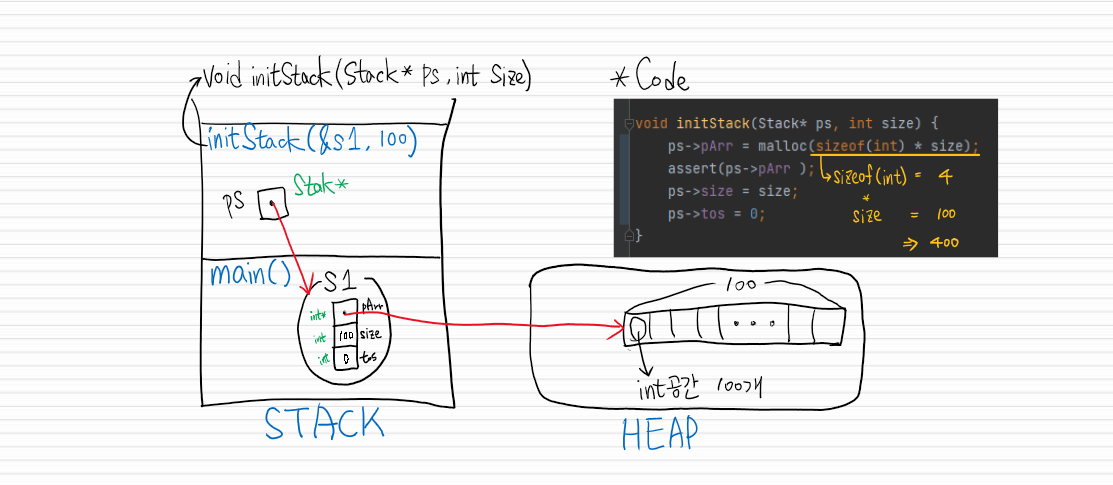 void initStack(Stack* ps, int size)
initStack(&s1, 100)
ps
Stak*
main()
S1
int* pArr
int 100 size
int 0 tos
STACK
*Code
void initStack(Stack* ps, int size) {
ps->pArr = malloc(sizeof(int) * size);
assert(ps->pArr );
ps->size = size;
ps->tos = 0;
}
sizeof(int) = 4
*
size = 100
⇒ 400
100
int공간 100개
HEAP